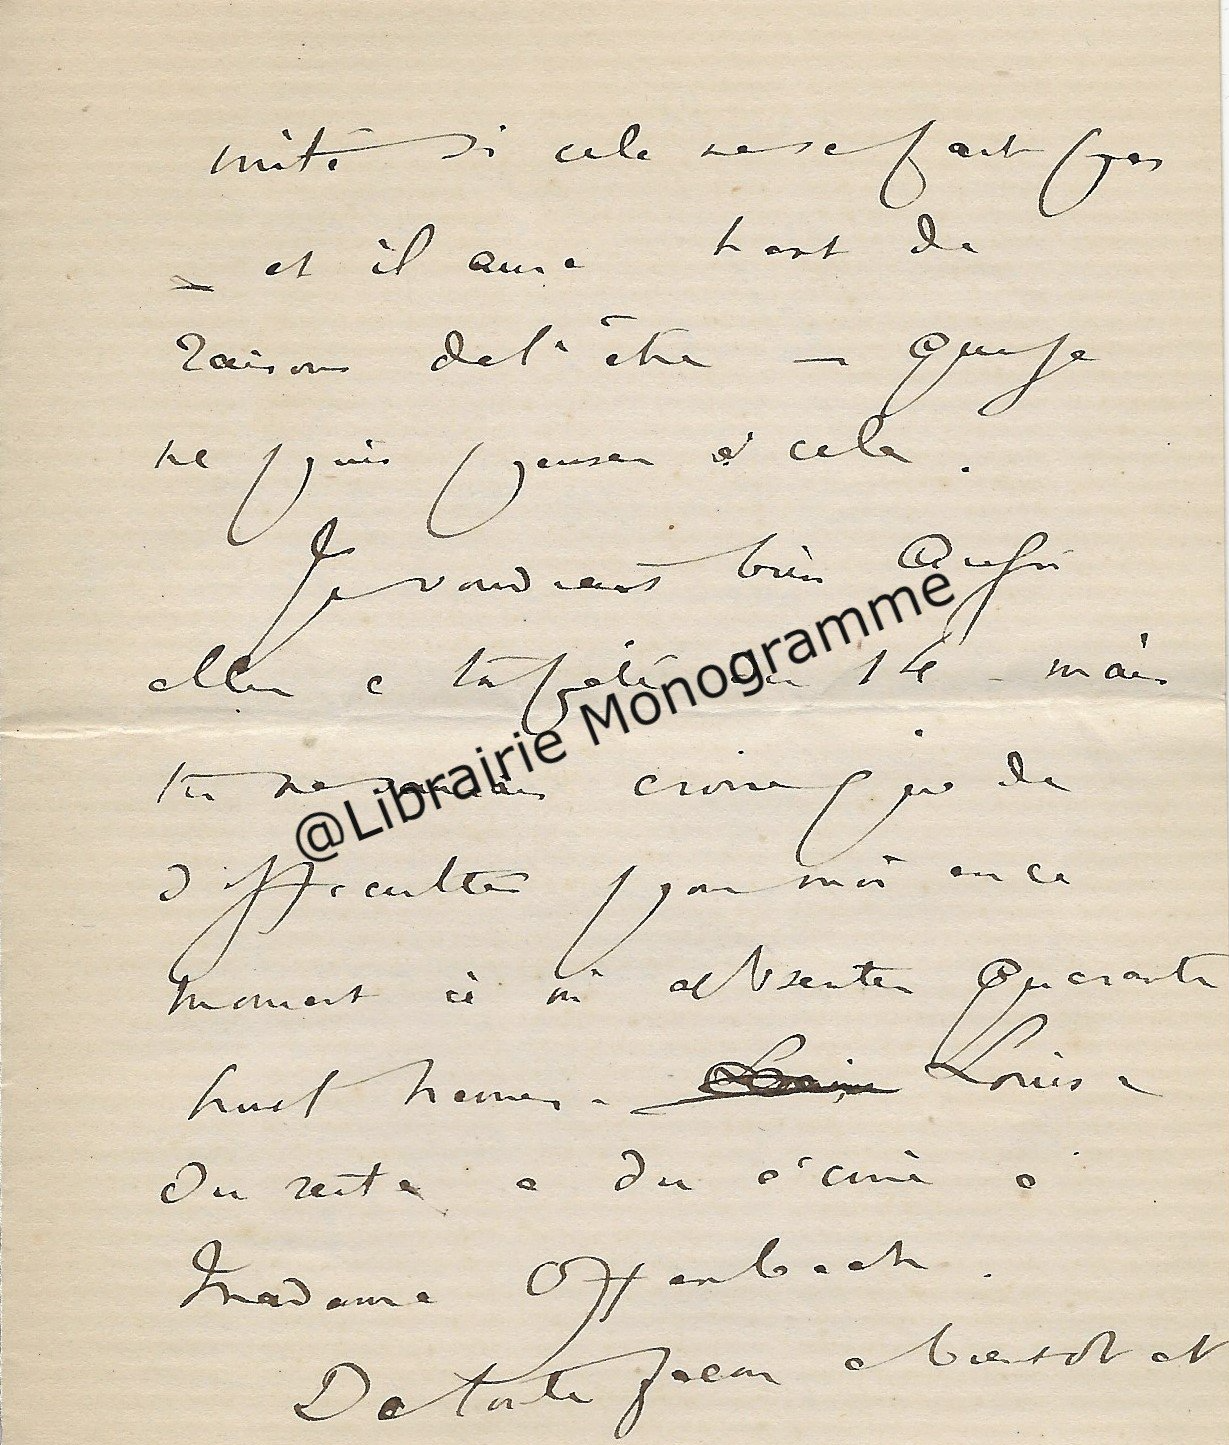 mité si cela ne se fait pas
et il aura tant de
raisons de l'être — que je
ne puis penser à cela.
Je voudrais bien aussi
aller à ta fête du 14 - mais
tu ne saurais croire que de
difficultés pour moi en ce
moment à m'absenter quarante
huit heures - Louise
du reste a du écrire à
Madame Offenbach.
De toute façon à bientôt et
@Librairie Monogramme